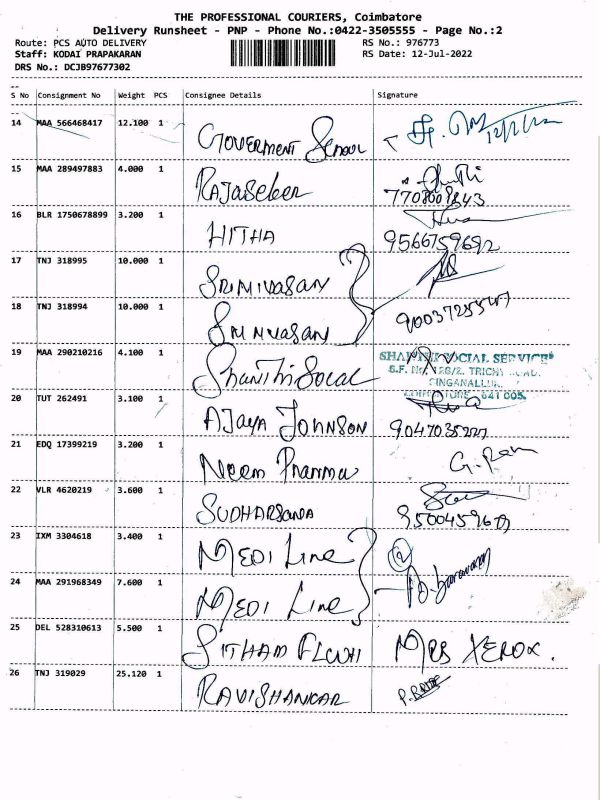 THE PROFESSIONAL COURIERS, Coimbatore
Delivery Runsheet - PNP - Phone No.:0422-3505555 - Page No.:2
Route: PCS AUTO DELIVERY RS No.: 976773
Staff: KODAI PRAPAKARAN RS Date: 12-Jul-2022
DRS No.: DCJB97677302
S No Consignment No Weight PCS Consignee Details Signature
14 MAA 566468417 12.100 1 GOVERMENT School
15 MAA 289497883 4.000 1 RAJASeker
7708008843
16 BLR 1750678899 3.200 1 HITHA
9566759692
17 TNJ 318995 10.000 1 SRINIVASAN
18 TNJ 318994 10.000 1 SRINIVASAN
19 MAA 290210216 4.100 1 Shanthi Social SHANTHI SOCIAL SERVICE
S.F. No. TRICHY ROAD,
SINGANALLUR,
COIMBATORE - 641 005.
20 TUT 262491 3.100 1 AJAYA JOHNSON
21 EDQ 17399219 3.200 1 Neem G. Ram
22 VLR 4620219 3.600 1 SUDHARSANA
23 IXM 3304618 3.400 1 MEDI Line 2
24 MAA 291968349 7.600 1 MEDI Line
25 DEL 528310613 5.500 1 SITHAM MRS XEROX.
26 TNJ 319029 25.120 1 RAVISHANKAR